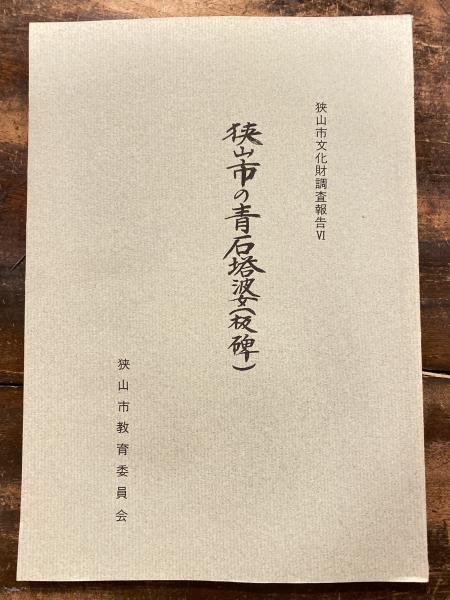 狭山市文化財調査報告Ⅵ
狭山市の青石塔婆(板碑)
狭山市教育委員会